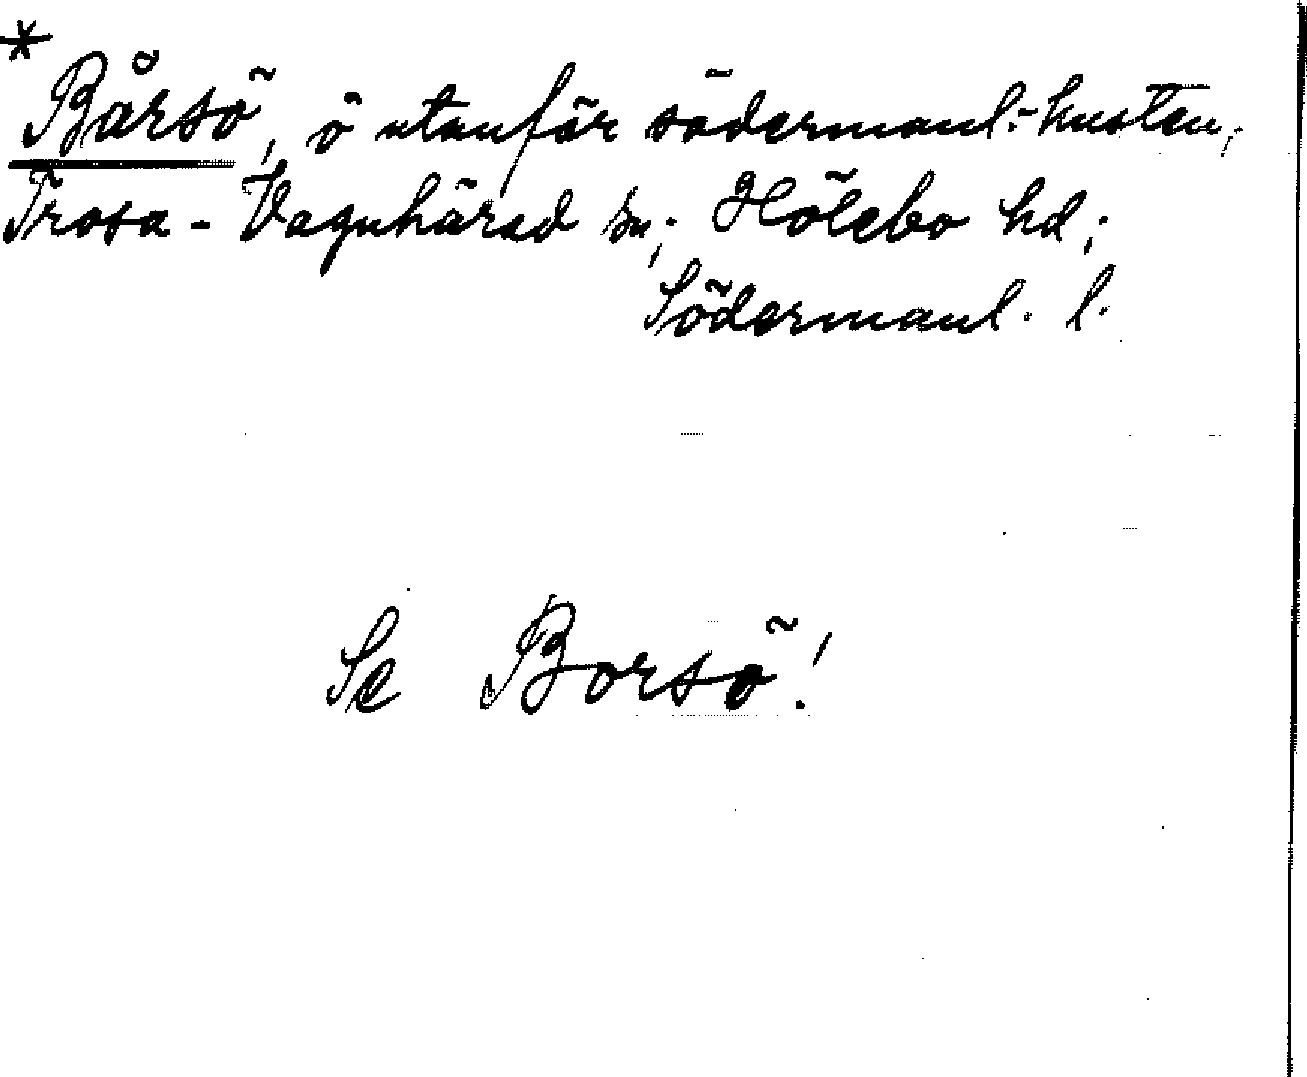 * Bårsö, ö utanför södermanl.-kusten;
Trosa-Vagnhärad sn; Hölebo hd;
Södermanl. l.
Se Borsö!